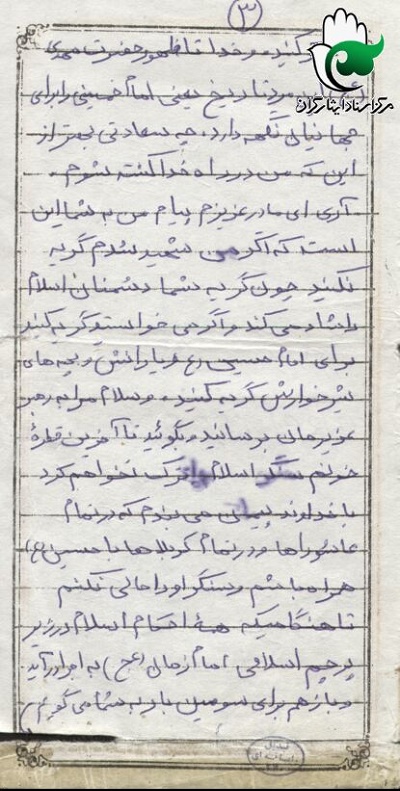 ۳
مرکز اسناد ایثارگران
کنید و خدا تا ظهور حضرت مهدی
مرد تاریخ یعنی امام خمینی را برای
جهانیان نگهدارد، چه سعادتی بهتر از
این که من در راه خدا کشته شوم.
آری ای مادر عزیزم پیام من به شما این
است که اگر من شهید شدم گریه
نکنید چون گریه شما دشمنان اسلام
را شاد می کند و اگر می خواستید گریه کنید
برای امام حسین (ع) و یارانش و بچه های
شیرخوارش گریه کنید. و سلام مرا به رهبر
عزیزمان برسانید و بگوئید تا آخرین قطرهٔ
خونم سنگر اسلام را ترک نخواهم کرد
با خداوند پیمان می بندم که در تمام
عاشوراها و در تمام کربلاها با حسین (ع)
همراه باشم و سنگر او را خالی نکنم
تا هنگامیکه همهٔ احکام اسلام در زیر
پرچم اسلامی امام زمان (عج) به اجرا درآید
و باز هم برای سومین بار به شما می گویم